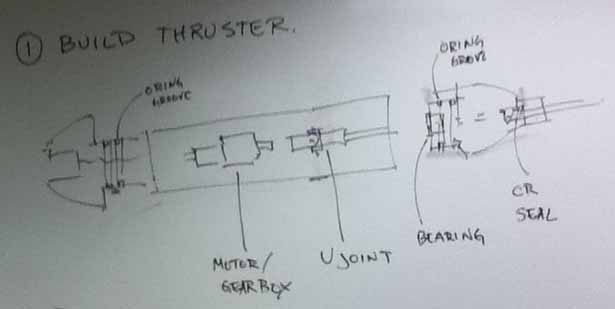 ① BUILD THRUSTER.
ORING
GROOVE
ORING
GROVE
MOTOR/
GEARBOX
U JOINT
BEARING
CR
SEAL